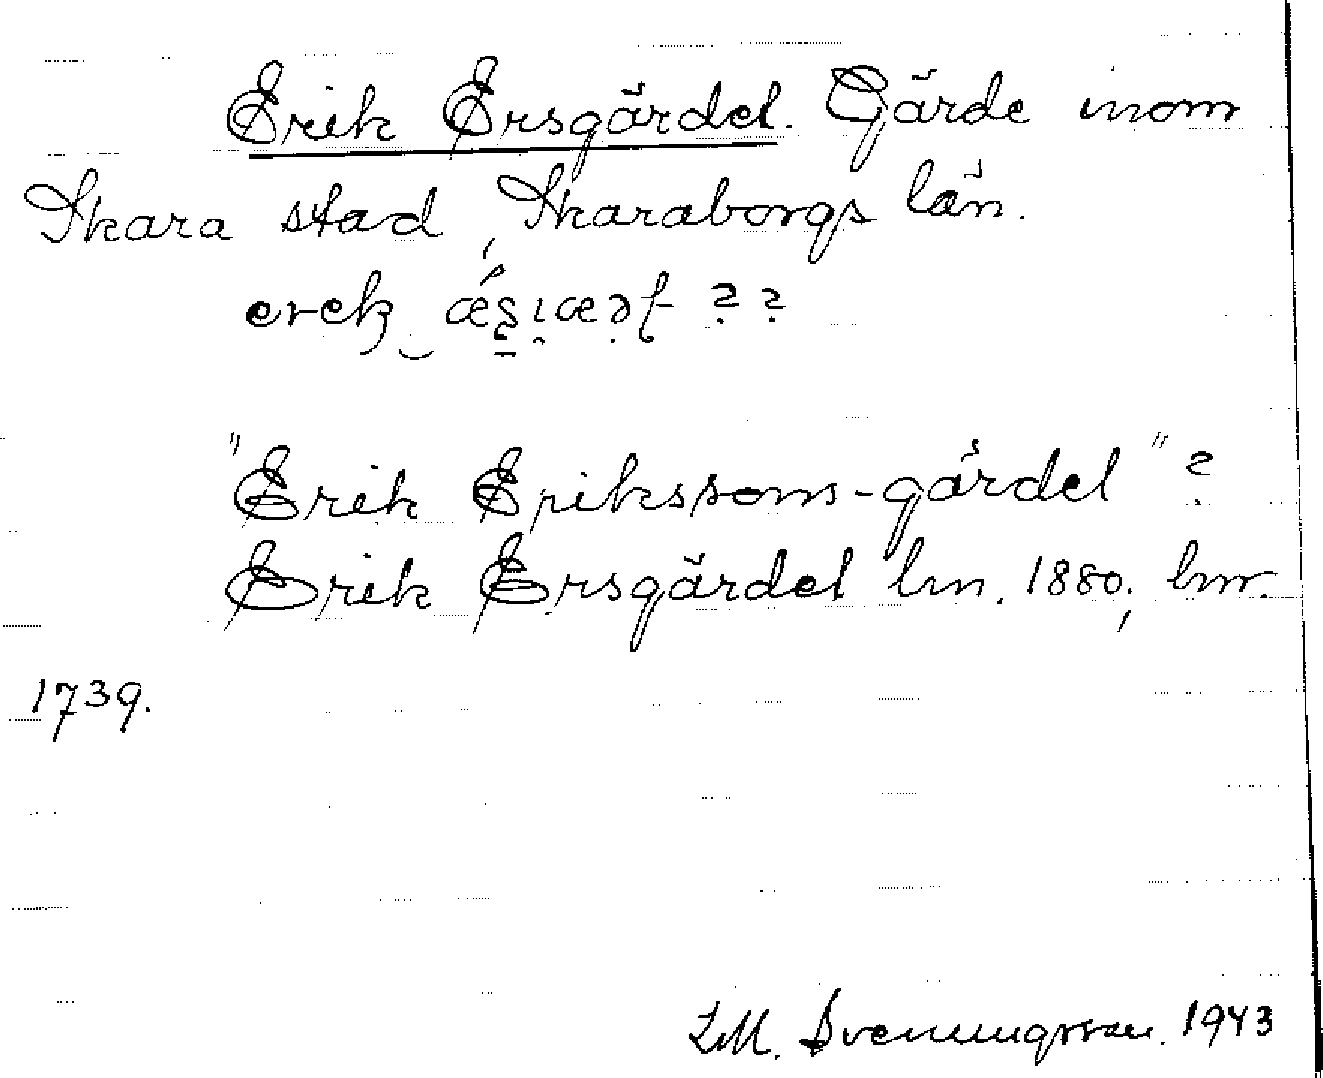 Erik Ersgärdel. Gärde inom
Skara stad, Skaraborgs län.
"Erik Erikssons-gärdel"?
Erik Ersgärdel lm. 1880; hmr.
1739.
Svenningsson. 1943